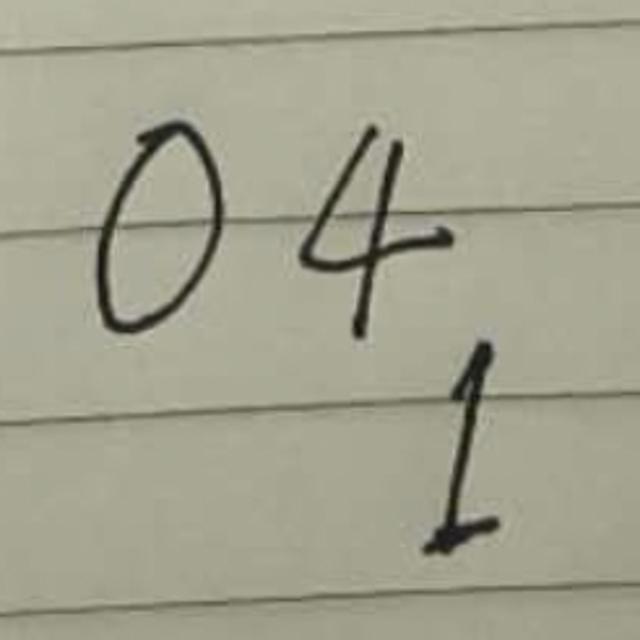 04
1